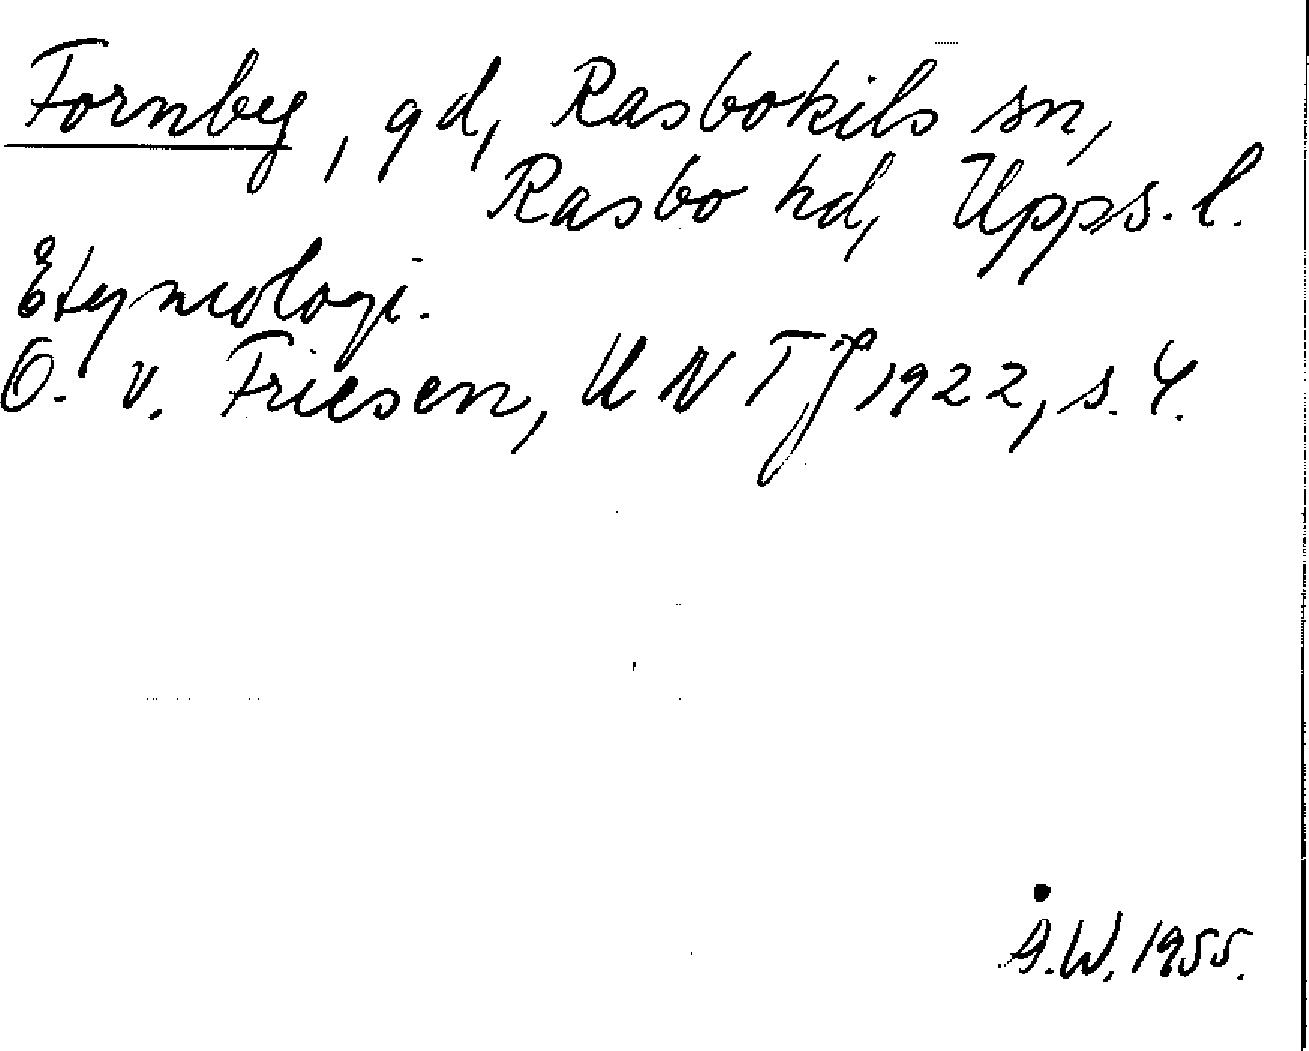 Fornby, gd, Rasbokils sn,
Rasbo hd, Upps. l.
Etymologi.
O. v. Friesen, UNTJ 1922, s. 4.
Å.W. 1955.